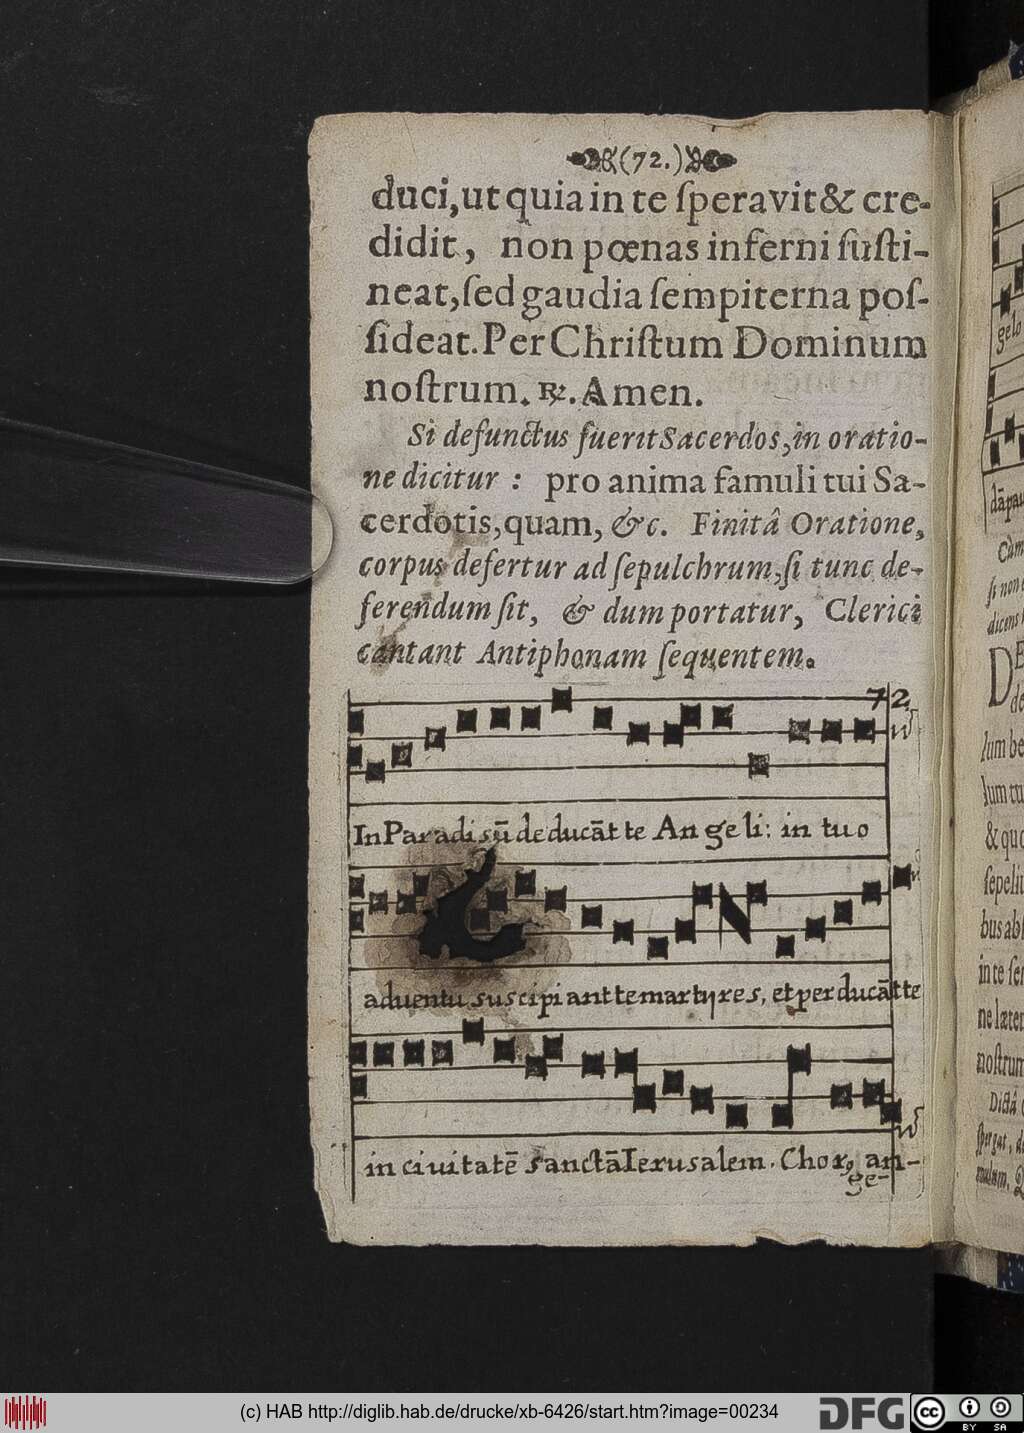 (72.)
duci, ut quia in te ſperavit & cre-
didit, non pœnas inferni ſuſti-
neat, ſed gaudia ſempiterna poſ-
ſideat. Per Chriſtum Dominum
noſtrum. ℟. Amen.
Si defunctus fuerit Sacerdos, in oratio-
ne dicitur : pro anima famuli tui Sa-
cerdotis, quam, &c. Finitâ Oratione,
corpus defertur ad ſepulchrum, ſi tunc de-
ferendum ſit, & dum portatur, Clerici
cantant Antiphonam ſequentem.
72.
In Paradisū deducāt te Angeli: in tuo
aduentu suscipiant te martyres, et perducāt te
in ciuitatē sanctā Ierusalem. Chorꝰ an-
ge-
gelo
dā pau
Cùm
ſi non
dicens
DE
de
lum be
lum tu
& quo
ſepeliu
bus abſ
in te ſe
ne læte
noſtrum
Dictâ
(c) HAB http://diglib.hab.de/drucke/xb-6426/start.htm?image=00234
DFG
cc
BY SA